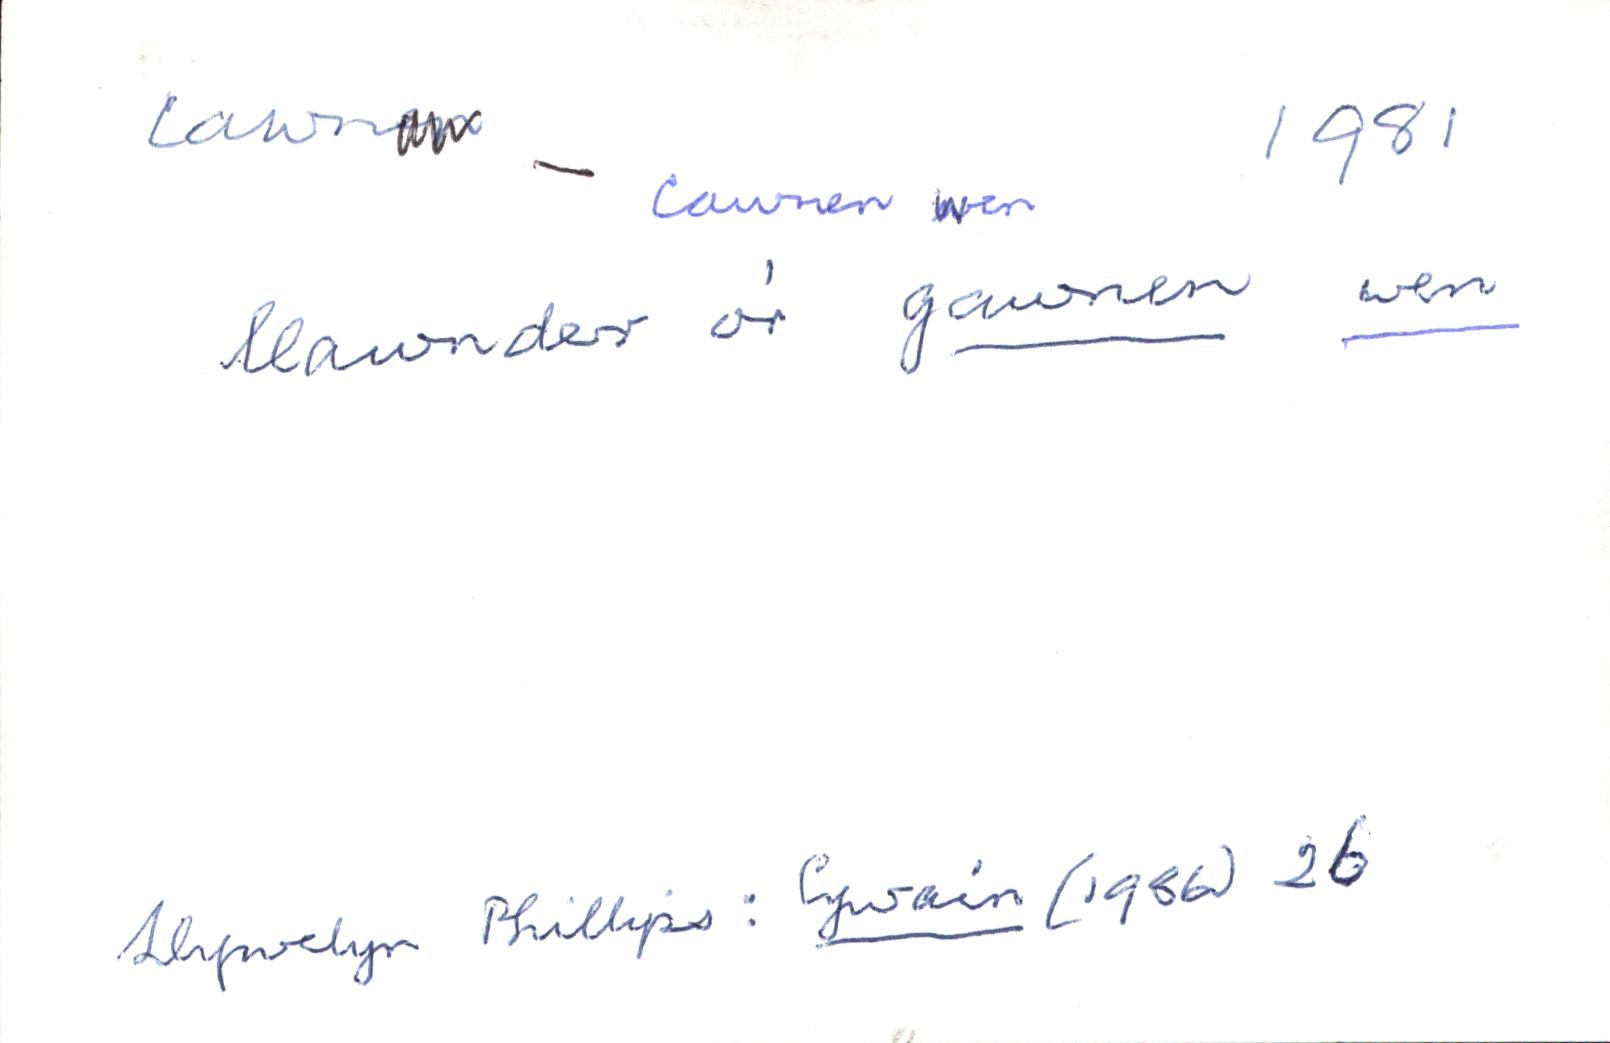 Cawn — 1981
Cawnen wen
llawnder o'r gawnen wen
Llywelyn Phillips: Cywain (1986) 26